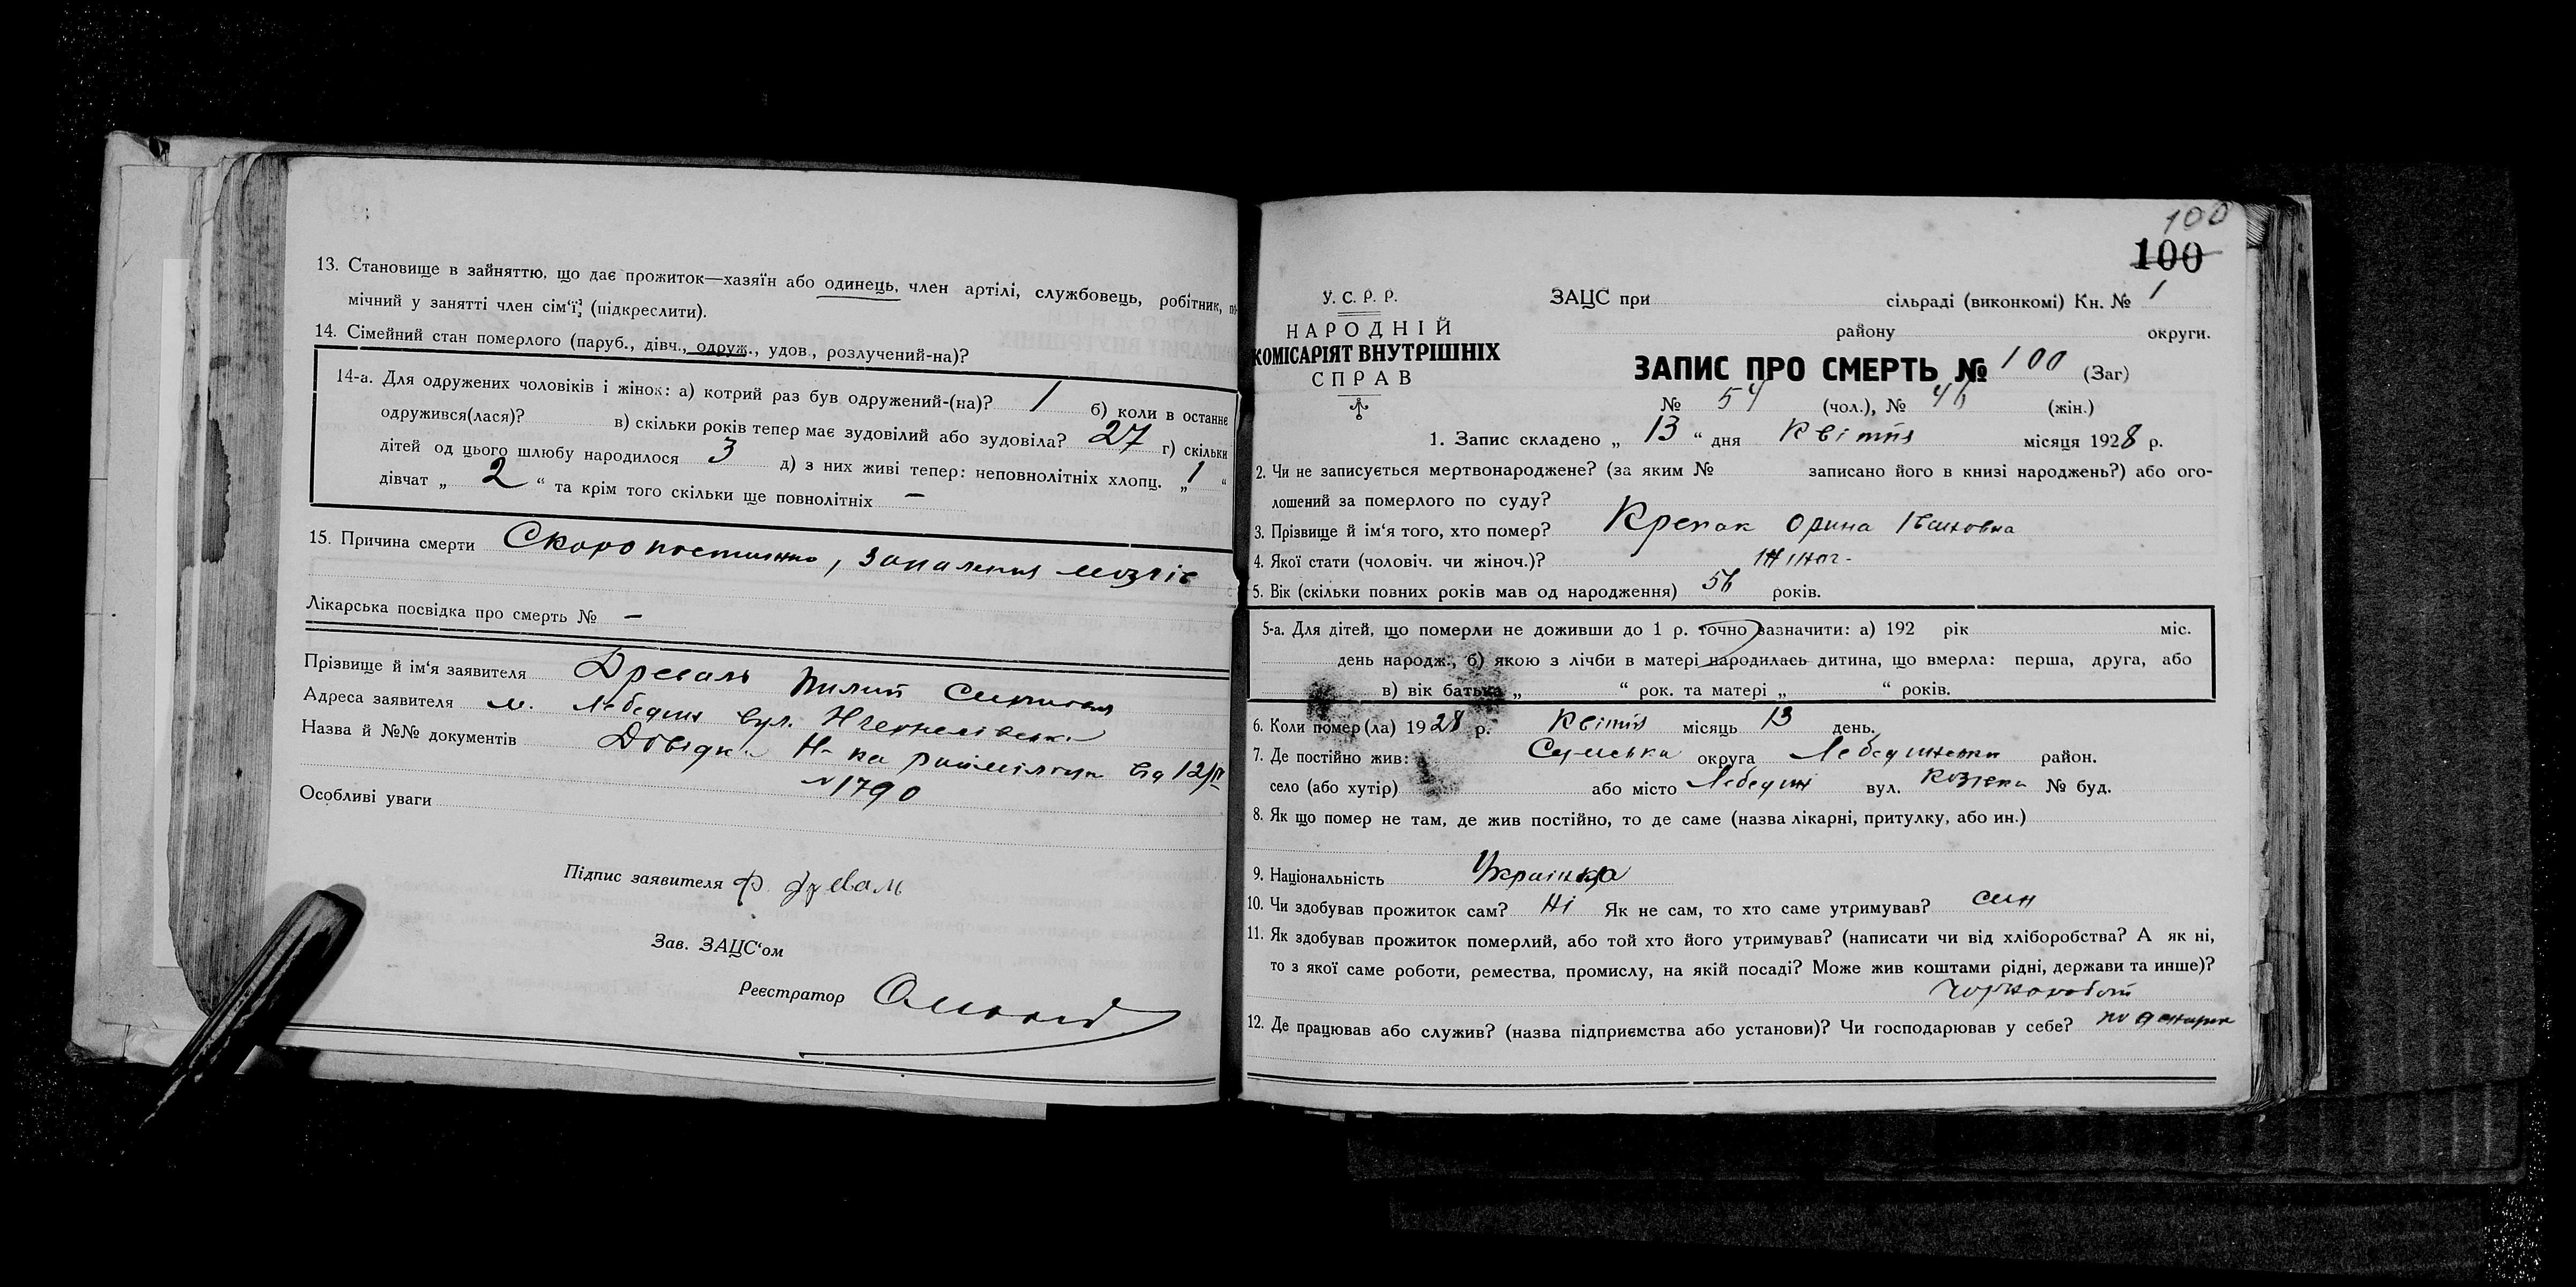 13. Становище в зайняттю, що дає прожиток—хазяїн або одинець, член артілі, службовець, робітник, по-
мічний у занятті член сім‘ї? (підкреслити).
14. Сімейний стан померлого (паруб., дівч., одруж., удов., розлучений-на)?
14-а. Для одружених чоловіків і жінок: а) котрий раз був одружений-(на)? 1 б) коли в останнє
одружився(лася)? в) скільки років тепер має зудовілий або зудовіла? 27 г) скільки
дітей од цього шлюбу народилося 3 д) з них живі тепер: неповнолітніх хлопц. „ 1 “
дівчат „ 2 “ та крім того скільки ще повнолітніх —
15. Причина смерти Скоропостижно, запалення мозгів
Лікарська посвідка про смерть № —
Прізвище й ім‘я заявителя Древаль Пилип
Адреса заявителя м. Лебедин вул.
Назва й №№ документів Довідк. Н-ка від 12/IV
№ 1790
Особливі уваги
Підпис заявителя Ф. Древаль
Зав. ЗАЦС‘ом
Реєстратор
100
100
У. С. Р. Р.
НАРОДНІЙ
КОМІСАРІЯТ ВНУТРІШНІХ
СПРАВ
ЗАЦС при сільраді (виконкомі) Кн. № 1
району округи.
ЗАПИС ПРО СМЕРТЬ № 100 (Заг)
№ 54 (чол.), № 46 (жін.)
1. Запис складено „ 13 “ дня Квітня місяця 1928 р.
2. Чи не записується мертвонароджене? (за яким № записано його в книзі народжень?) або ого-
лошений за померлого по суду?
3. Прізвище й ім‘я того, хто помер? Крепак Орина Івановна
4. Якої стати (чоловіч. чи жіноч.)? жіноч-
5. Вік (скільки повних років мав од народження) 56 років.
5-а. Для дітей, що померли не доживши до 1 р. точно зазначити: а) 192 рік міс.
день народж., б) якою з лічби в матері народилась дитина, що вмерла: перша, друга, або
в) вік батька „ “ рок. та матері „ “ років.
6. Коли помер(ла) 1928 р. Квітня місяць 13 день.
7. Де постійно жив: Сумська округа Лебединський район.
село (або хутір) або місто Лебедин вул. № буд.
8. Як що помер не там, де жив постійно, то де саме (назва лікарні, притулку, або ин.)
9. Національність Українка
10. Чи здобував прожиток сам? Ні Як не сам, то хто саме утримував? син
11. Як здобував прожиток померлий, або той хто його утримував? (написати чи від хліборобства? А як ні,
то з якої саме роботи, ремества, промислу, на якій посаді? Може жив коштами рідні, держави та инше)?
Чорнороб
12. Де працював або служив? (назва підприємства або установи)? Чи господарював у себе?